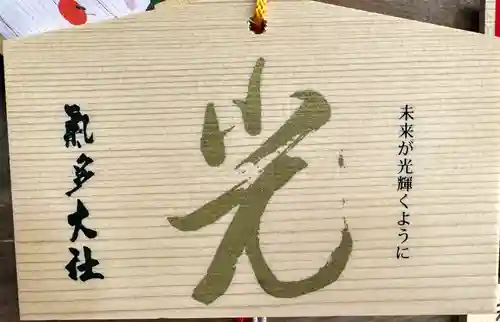 未来が光輝くように
光
氣多大社